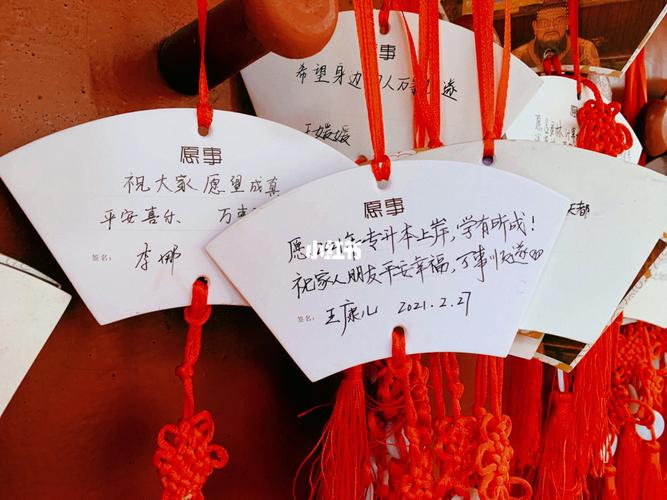 愿事
希望身边 人万 遂
王媛媛
愿事
祝大家愿望成真
平安喜乐 万事
签名:
李娜
愿事
愿 专升本上岸,学有所成!
祝家人朋友平安幸福,万事顺遂
签名:
王康儿 2021.2.27
小红书
天都